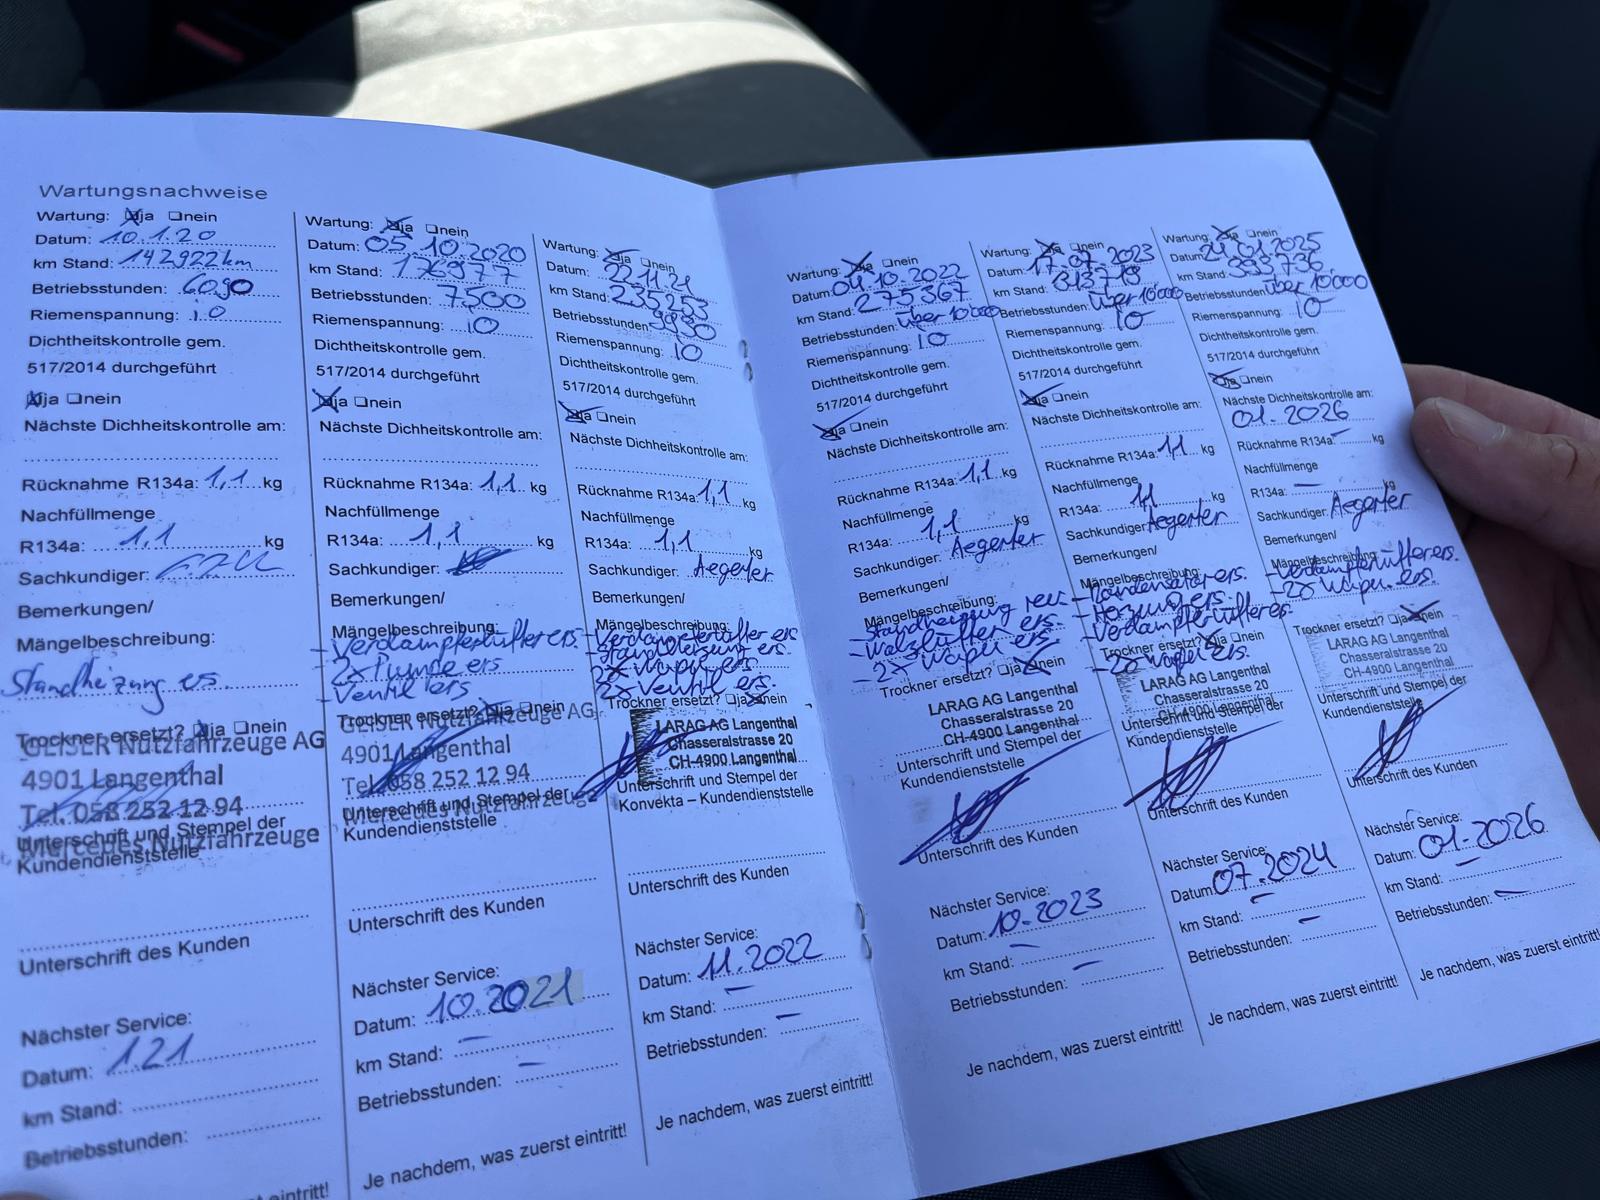 Wartungsnachweise
Wartung: ja nein
Datum: 10.1.20
km Stand: 142922km
Betriebsstunden: 6090
Riemenspannung: i.O
Dichtheitskontrolle gem.
517/2014 durchgeführt
ja nein
Nächste Dichheitskontrolle am:
Rücknahme R134a: 1,1 kg
Nachfüllmenge
R134a: 1,1 kg
Sachkundiger:
Bemerkungen/
Mängelbeschreibung:
Standheizung ers.
Trockner ersetzt? ja nein
GEISER Nutzfahrzeuge AG
4901 Langenthal
Tel. 058 252 12 94
Unterschrift und Stempel der
Mercedes Nutzfahrzeuge
Kundendienststelle
Unterschrift des Kunden
Nächster Service:
Datum: 1.21
km Stand:
Betriebsstunden:
eintritt!
Wartung: ja nein
Datum: 05.10.2020
km Stand: 176977
Betriebsstunden: 7500
Riemenspannung: iO
Dichtheitskontrolle gem.
517/2014 durchgeführt
ja nein
Nächste Dichheitskontrolle am:
Rücknahme R134a: 1,1 kg
Nachfüllmenge
R134a: 1,1 kg
Sachkundiger:
Bemerkungen/
Mängelbeschreibung:
- Verdampferlüfter ers.
- 2x ers
- Ventil ers
Trockner ersetzt? ja nein
GEISER Nutzfahrzeuge AG
4901 Langenthal
Tel. 058 252 12 94
Unterschrift und Stempel der
Mercedes Nutzfahrzeuge
Kundendienststelle
Unterschrift des Kunden
Nächster Service:
Datum: 10.2021
km Stand: -
Betriebsstunden: -
Je nachdem, was zuerst eintritt!
Wartung: ja nein
Datum: 22.11.21
km Stand: 235253
Betriebsstunden: 9930
Riemenspannung: iO
Dichtheitskontrolle gem.
517/2014 durchgeführt
ja nein
Nächste Dichheitskontrolle am:
Rücknahme R134a: 1,1 kg
Nachfüllmenge
R134a: 1,1 kg
Sachkundiger: Aegerter
Bemerkungen/
Mängelbeschreibung:
- Verdampferlüfter ers.
- Standheizung ers.
Wapu ers.
2x Ventil ers.
Trockner ersetzt? ja nein
LARAG AG Langenthal
Chasseralstrasse 20
CH-4900 Langenthal
Unterschrift und Stempel der
Konvekta – Kundendienststelle
Unterschrift des Kunden
Nächster Service:
Datum: 11.2022
km Stand: -
Betriebsstunden: -
Je nachdem, was zuerst eintritt!
Wartung: ja nein
Datum: 04.10.2022
km Stand: 275367
Betriebsstunden: über 10000
Riemenspannung: iO
Dichtheitskontrolle gem.
517/2014 durchgeführt
ja nein
Nächste Dichheitskontrolle am:
Rücknahme R134a: 1,1 kg
Nachfüllmenge
R134a: 1,1 kg
Sachkundiger: Aegerter
Bemerkungen/
Mängelbeschreibung:
- Standheizung rev.
ers.
- 2x Wapu ers.
Trockner ersetzt? ja nein
LARAG AG Langenthal
Chasseralstrasse 20
CH-4900 Langenthal
Unterschrift und Stempel der
Kundendienststelle
Unterschrift des Kunden
Nächster Service:
Datum: 10.2023
km Stand: -
Betriebsstunden: -
Je nachdem, was zuerst eintritt!
Wartung: ja nein
Datum: 17.07.2023
km Stand: 313719
Betriebsstunden: über 10000
Riemenspannung: iO
Dichtheitskontrolle gem.
517/2014 durchgeführt
ja nein
Nächste Dichheitskontrolle am:
Rücknahme R134a: 1,1 kg
Nachfüllmenge
R134a: 1,1 kg
Sachkundiger: Aegerter
Bemerkungen/
Mängelbeschreibung:
ers.
- Heizung ers.
- Verdampferlüfter ers.
Trockner ersetzt? ja nein
ers.
LARAG AG Langenthal
Chasseralstrasse 20
CH-4900 Langenthal
Unterschrift und Stempel der
Kundendienststelle
Unterschrift des Kunden
Nächster Service:
Datum: 07.2024
km Stand: -
Betriebsstunden: -
Je nachdem, was zuerst eintritt!
Wartung: ja nein
Datum: 24.01.2025
km Stand: 393736
Betriebsstunden: über 10000
Riemenspannung: iO
Dichtheitskontrolle gem.
517/2014 durchgeführt
ja nein
Nächste Dichheitskontrolle am:
01.2026
Rücknahme R134a: - kg
Nachfüllmenge
R134a: - kg
Sachkundiger: Aegerter
Bemerkungen/
Mängelbeschreibung:
- Verdampferlüfter ers.
Wapu ers.
Trockner ersetzt? ja nein
LARAG AG Langenthal
Chasseralstrasse 20
CH-4900 Langenthal
Unterschrift und Stempel der
Kundendienststelle
Unterschrift des Kunden
Nächster Service:
Datum: 01-2026
km Stand: -
Betriebsstunden: -
Je nachdem, was zuerst eintritt!